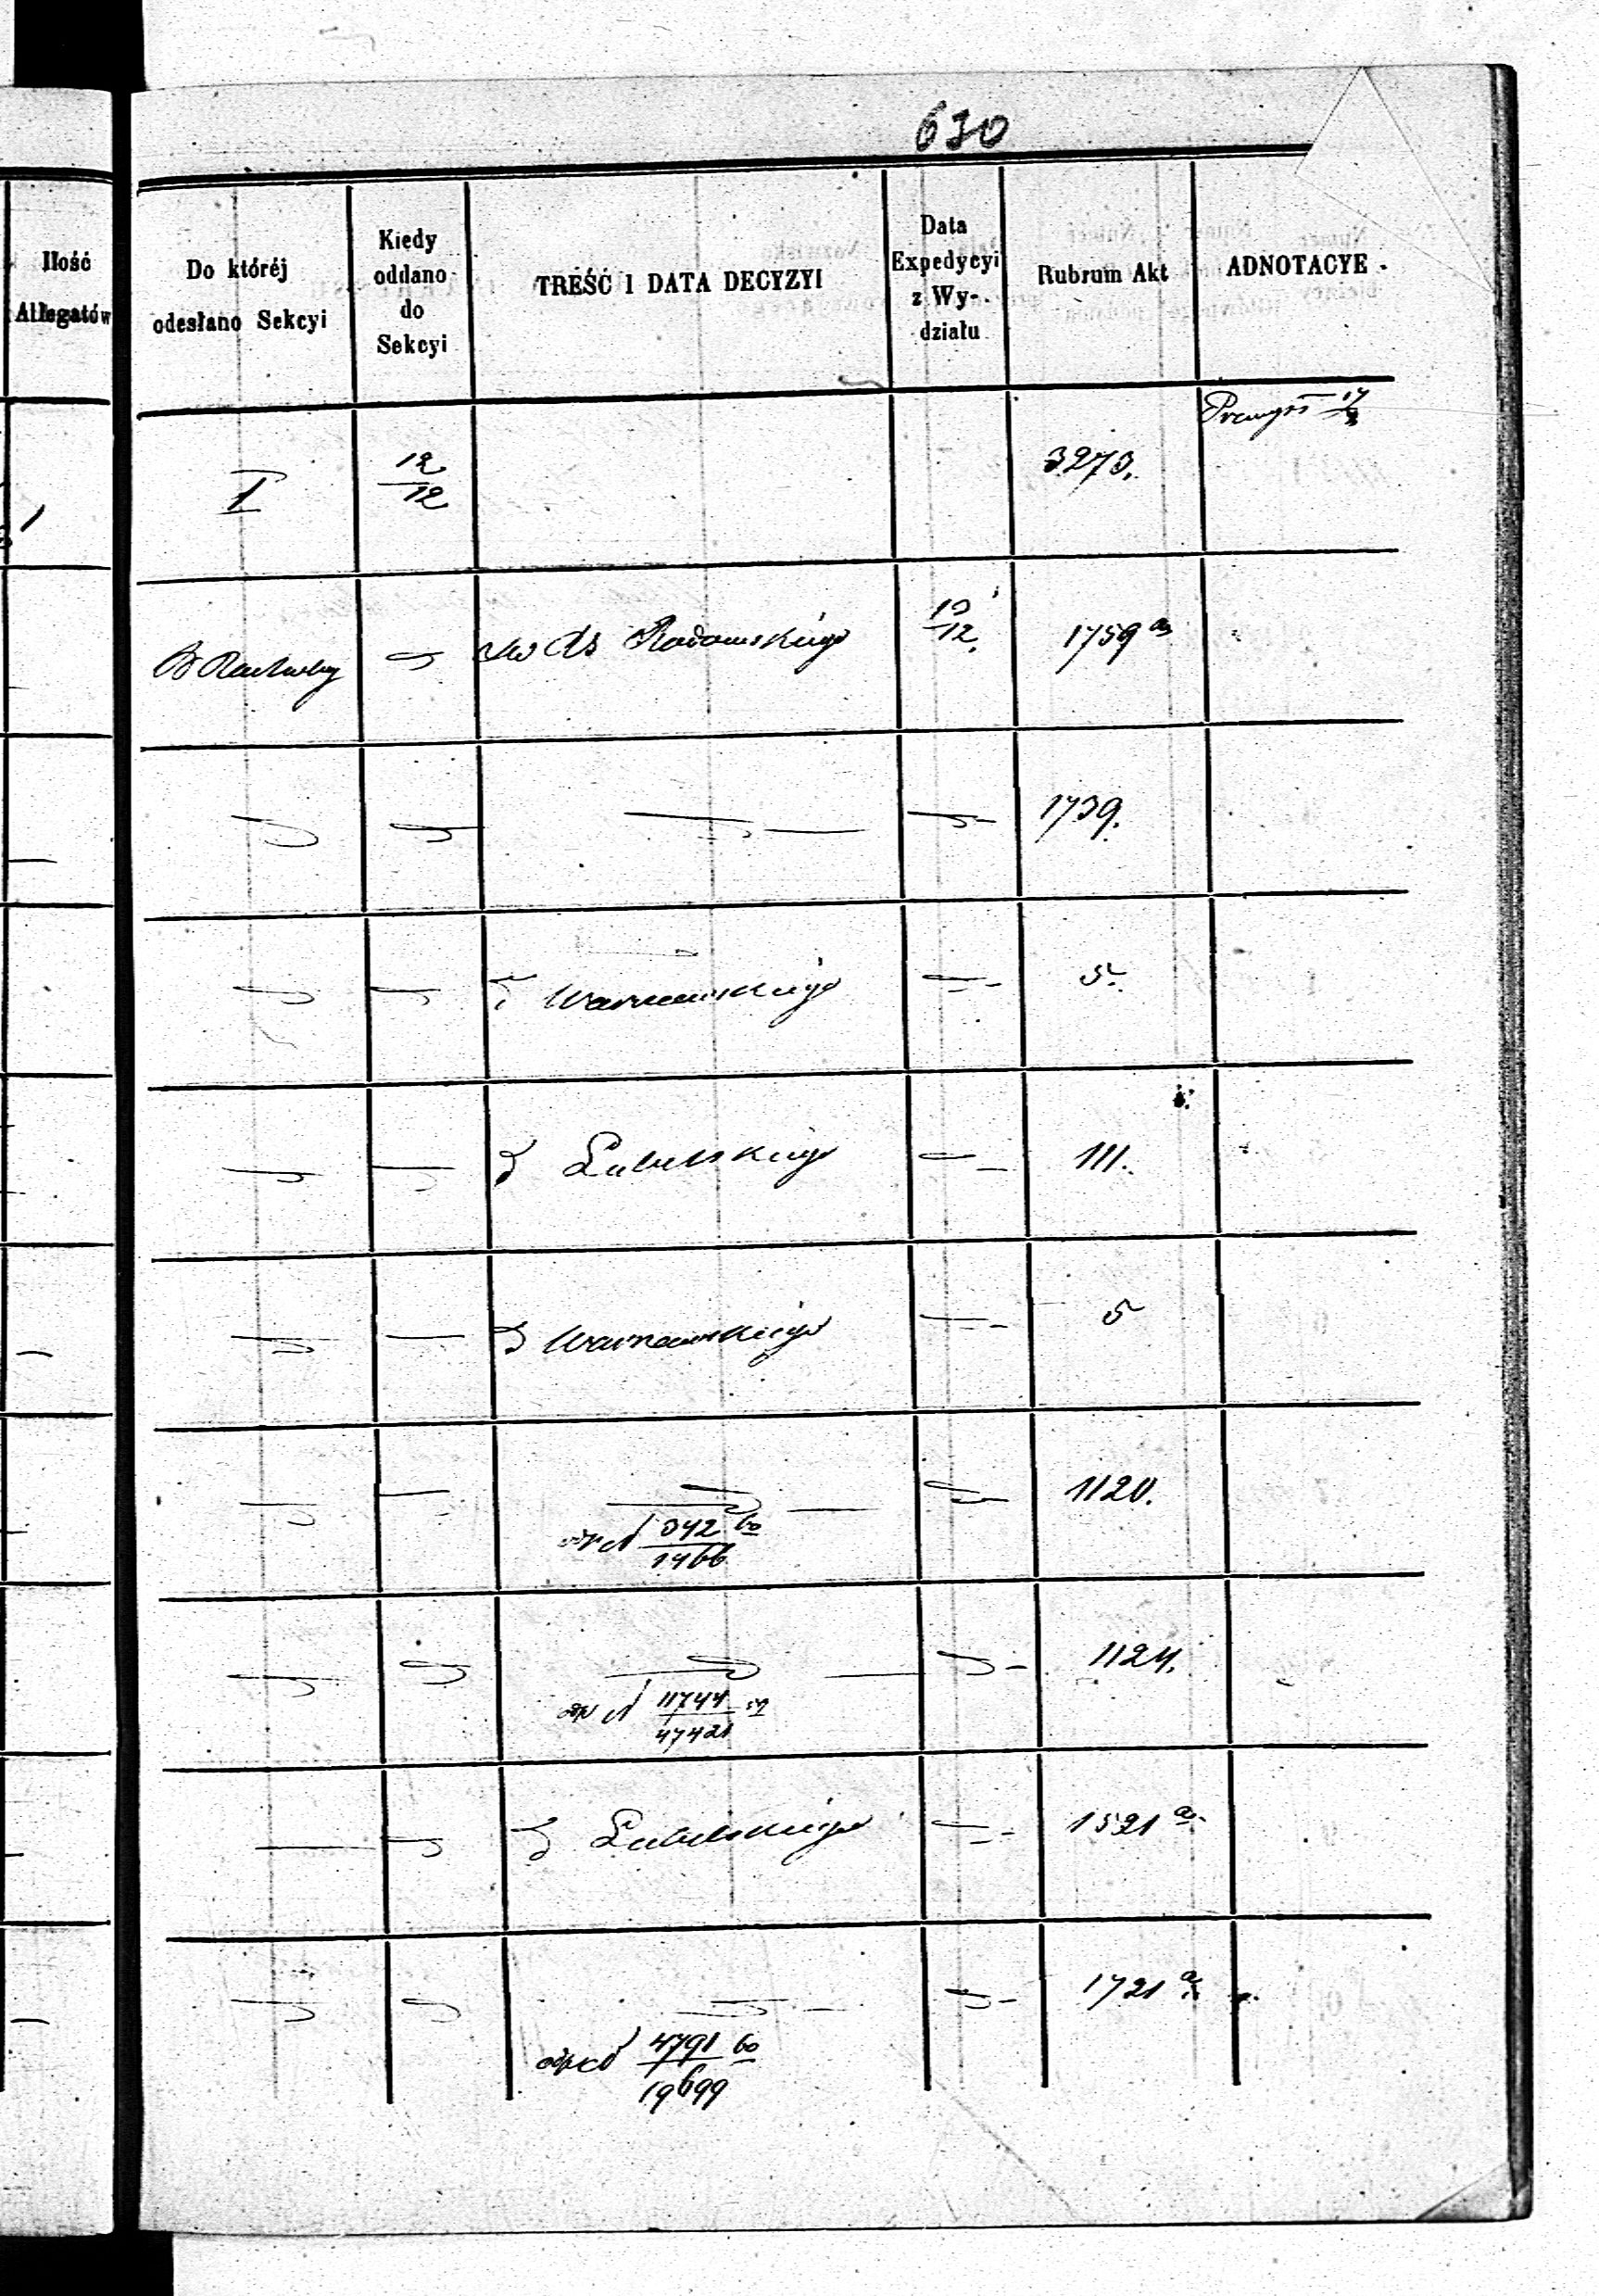 630
Ilość
Allegatów
Do któréj
odesłano Sekcyi
Kiedy
oddano
do
Sekcyi
TREŚĆ I DATA DECYZYI
Data
Expedycyi
z Wy-
działu
Rubrum Akt
ADNOTACYE.
1
I
12
12
3273.
Do Radomskiego
12
1759 a
1739.
Warszawskiego
5.
Lubelskiego
111.
Warszawskiego
5
1120.
342
1466
1124.
11744
47421
Lubelskiego
1521 a.
1721 a
4791
19699